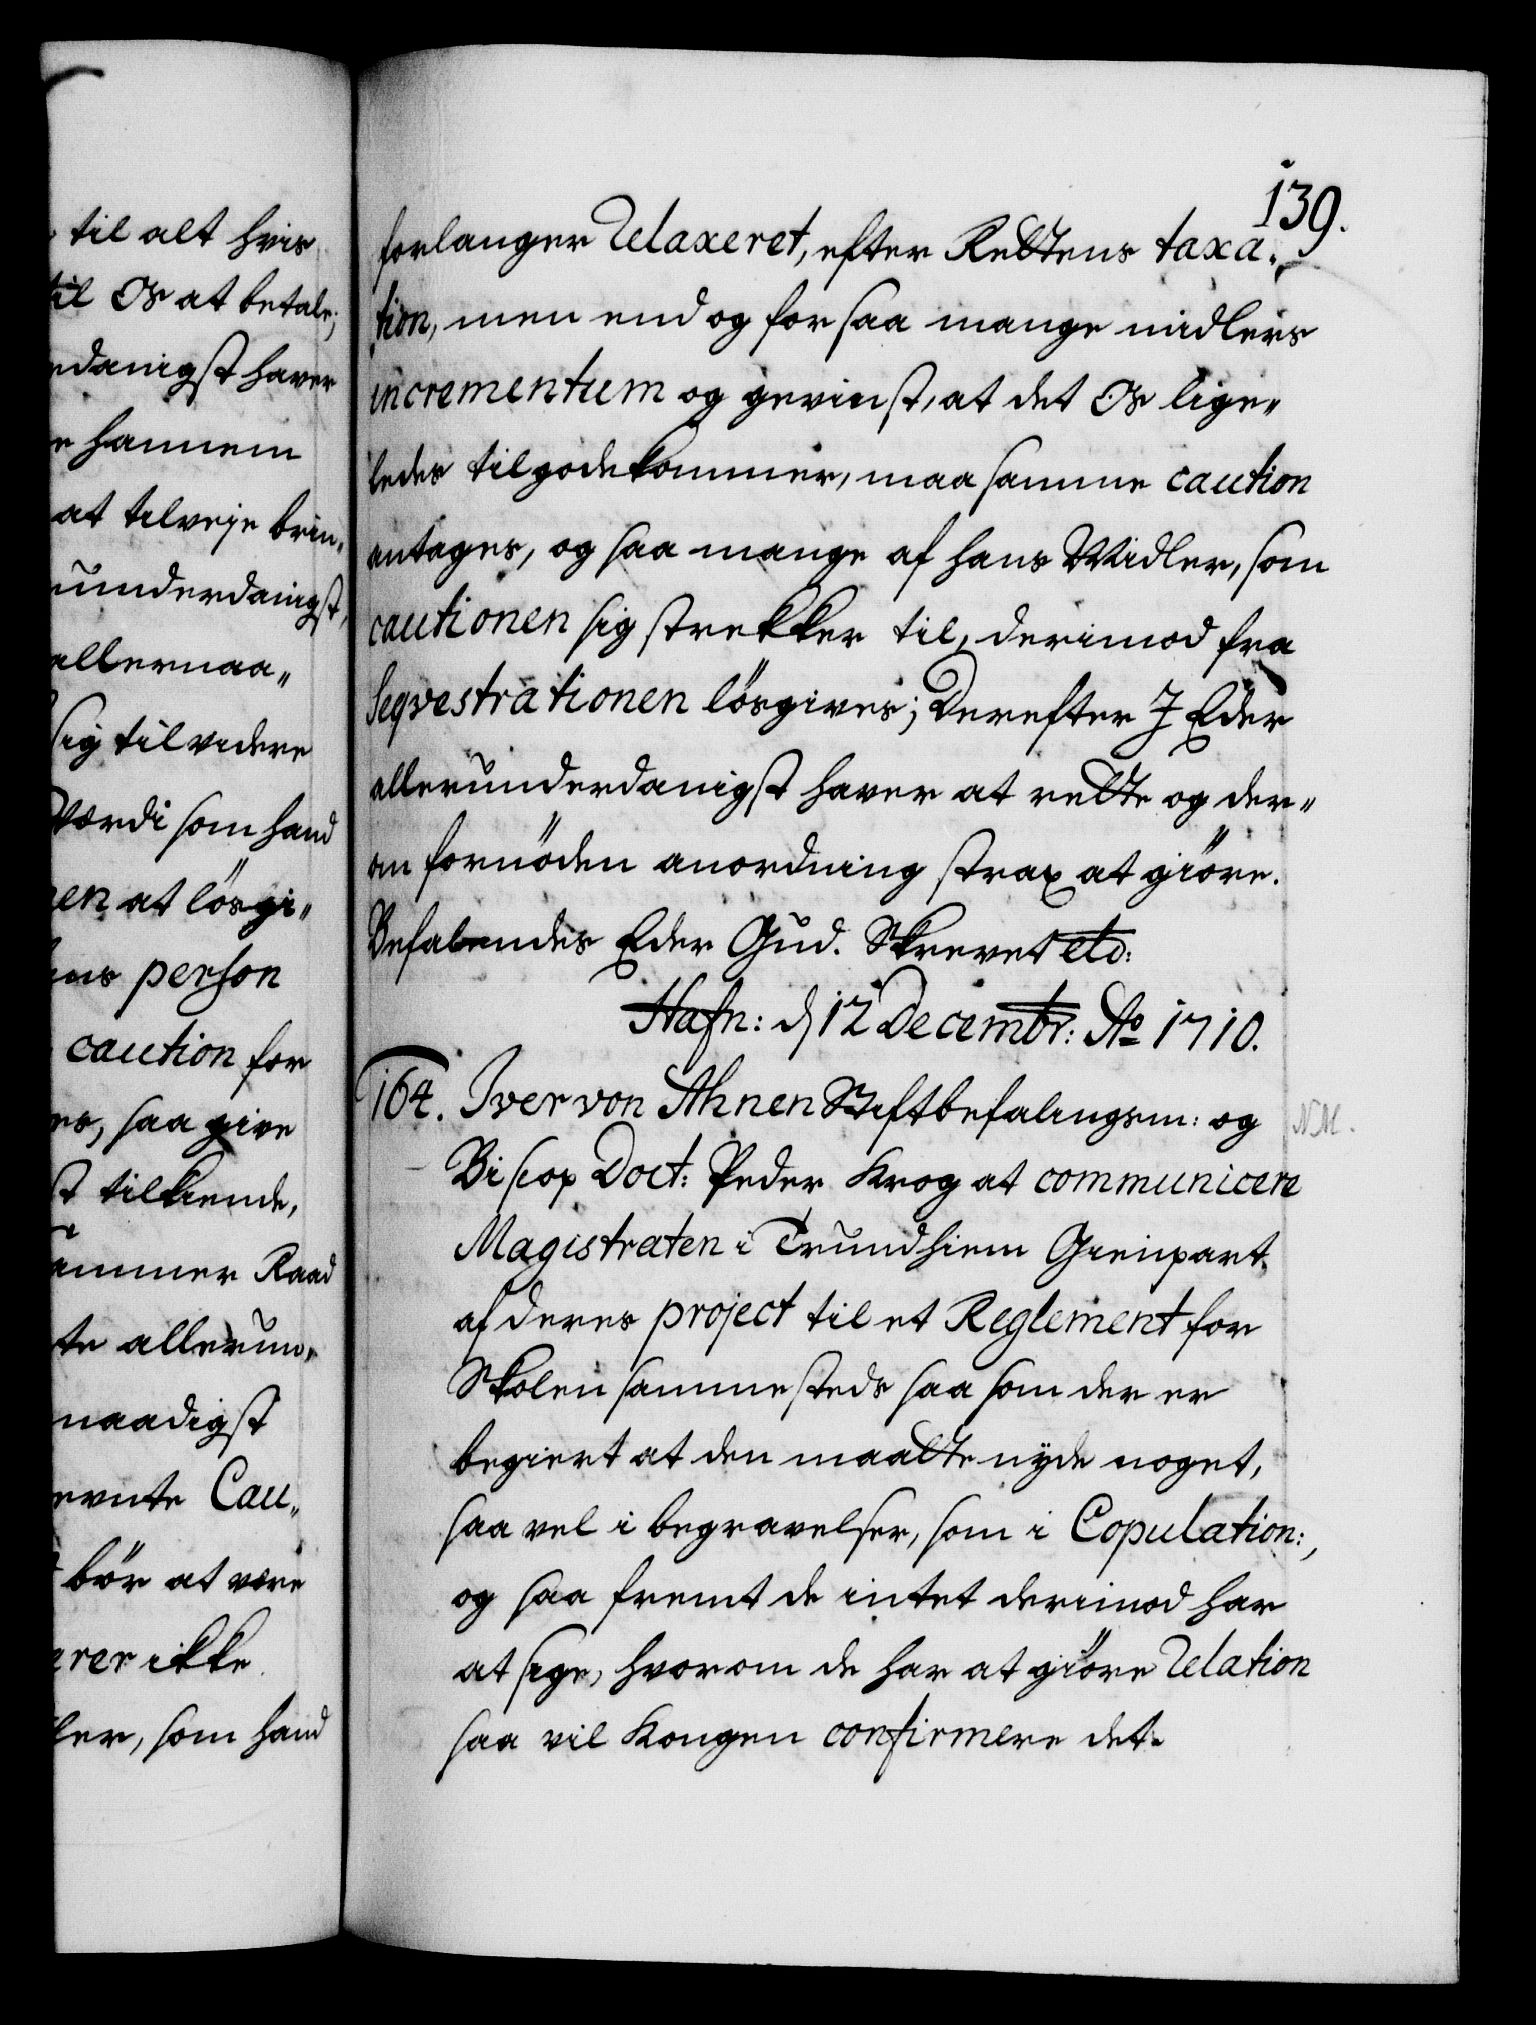 til alt hvis
til Os at betale,
danigst haver
hannem
at tilveje brin„
underdanigst,
allernaa„
sig til videre
Værdi som hand
at lösgi„
person
caution for
saa give
tilkiende,
Raad
te allerun„
naadigst
Cau„
bör at være
ikke
som hand
139.
forlanger relaxeret, efter Rettens taxa„
tion, men end og for saa mange midlers
incrementum og gevinst, at det Os lige„
ledes tilgodekommer, maa samme caution
antages, og saa mange af hans Midler, som
cautionen sig strekker til, derimod fra
Seqvestrationen lösgives; Derefter I Eder
allerunderdanigst haver at rette og der„
om fornöden anordning strax at giöre.
Befalendes Eder Gud. Skrevet etc:
Hafn: d 12 Decembr: Ao 1710.
164. Iver von Ahnen Stiftbefalingsm: og
N.M.
Biscop Doct: Peder Krog at communicere
Magistraten i Trundhiem Gienpart
af deres project til et Reglement for
Skolen sammesteds saa som der er
begiert at den maatte nyde noget,
saa vel i begravelser, som i Copulation:,
og saa fremt de intet derimod har
at sige, hvorom de har at giöre relation
saa vil Kongen confirmere det.